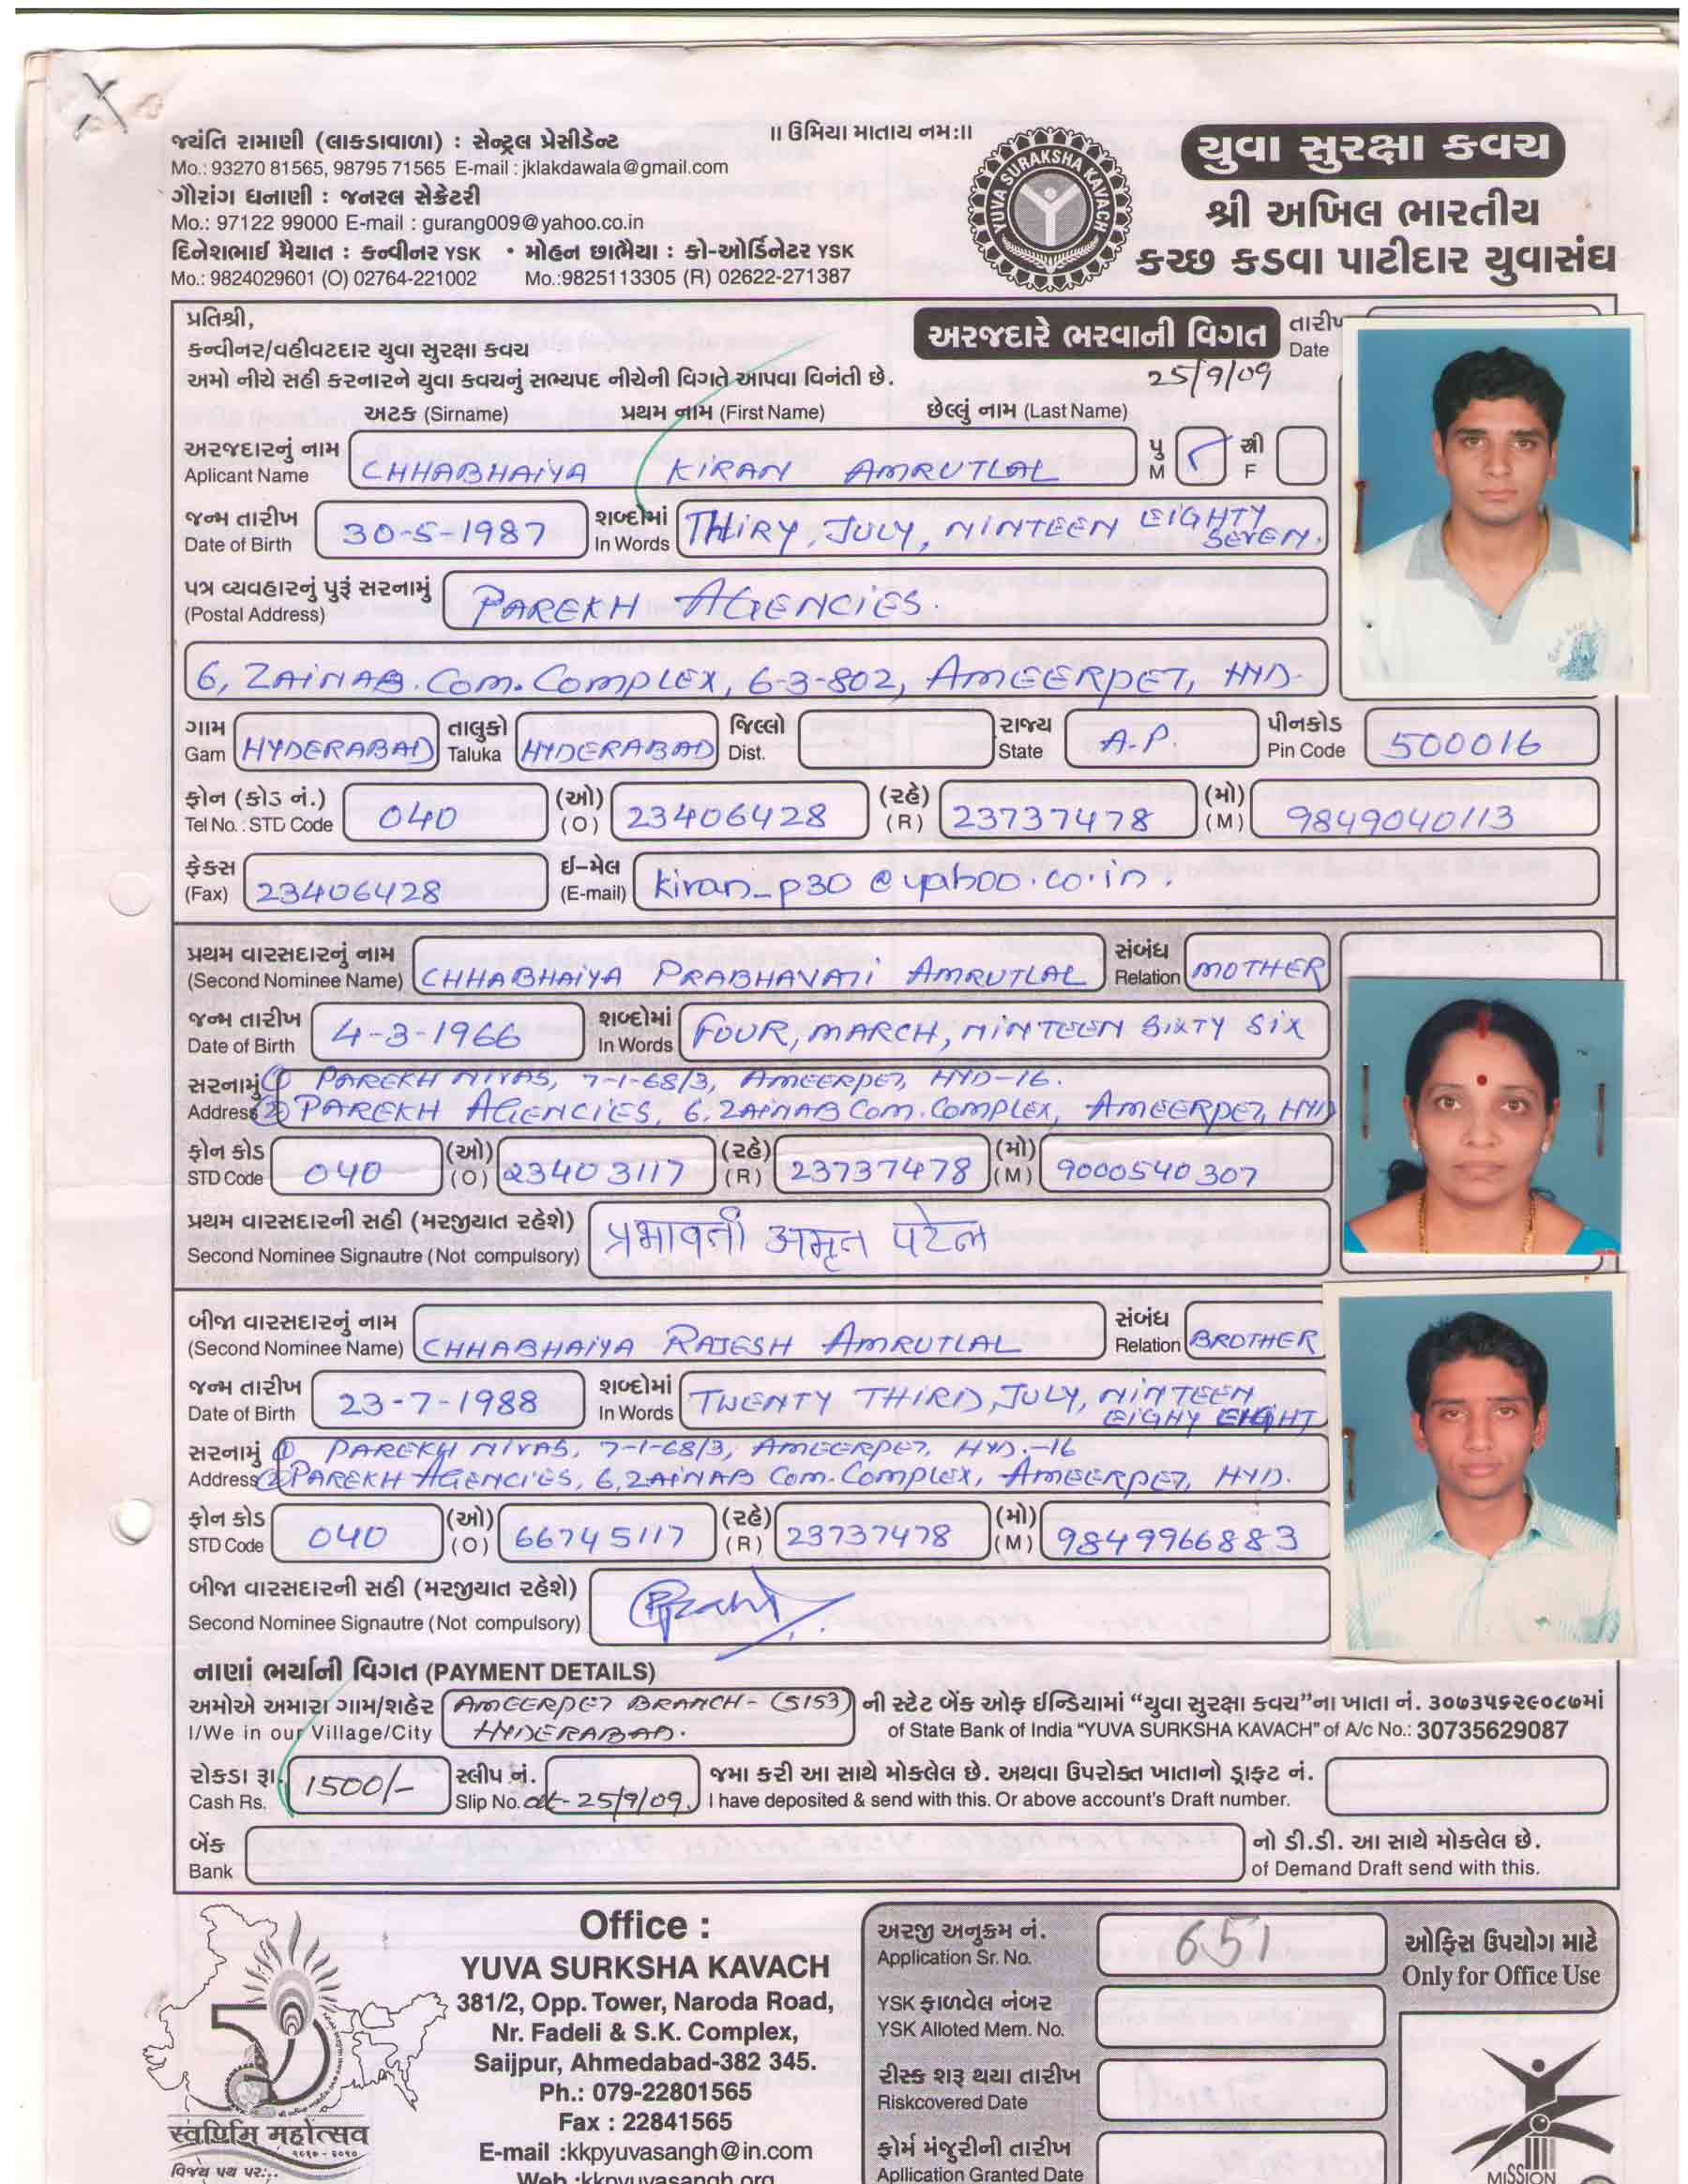 ॥ ઉમિયા માતાય નમ:॥
જ્યંતિ રામાણી (લાકડાવાળા) : સેન્ટ્રલ પ્રેસીડેન્ટ
Mo.: 93270 81565, 98795 71565 E-mail : jklakdawala@gmail.com
ગૌરાંગ ધનાણી : જનરલ સેક્રેટરી
Mo.: 97122 99000 E-mail : gurang009@yahoo.co.in
દિનેશભાઈ મૈયાત : કન્વીનર YSK • મોહન છાભૈયા : કો-ઓર્ડિનેટર YSK
Mo.: 9824029601 (O) 02764-221002 Mo.:9825113305 (R) 02622-271387
YUVA SURAKSHA KAVACH
યુવા સુરક્ષા કવચ
શ્રી અખિલ ભારતીય
કચ્છ કડવા પાટીદાર યુવાસંઘ
પ્રતિશ્રી,
કન્વીનર/વહીવટદાર યુવા સુરક્ષા કવચ
અમો નીચે સહી કરનારને યુવા કવચનું સભ્યપદ નીચેની વિગતે આપવા વિનંતી છે.
અરજદારે ભરવાની વિગત
તારીખ
Date
25/9/09
અટક (Sirname) પ્રથમ નામ (First Name) છેલ્લું નામ (Last Name)
અરજદારનું નામ
Aplicant Name CHHABHAIYA KIRAN AMRUTLAL પુ M સ્રી F
જન્મ તારીખ
Date of Birth 30-5-1987 શબ્દોમાં In Words THIRY, JULY, NINTEEN EIGHTY SEVEN.
પત્ર વ્યવહારનું પુરૂં સરનામું
(Postal Address) PAREKH AGENCIES.
6, ZAINAB. COM. COMPLEX, 6-3-802, AMEERPET, HYD.
ગામ તાલુકો જિલ્લો રાજ્ય પીનકોડ
Gam HYDERABAD Taluka HYDERABAD Dist. State A.P. Pin Code 500016
ફોન (કોડ નં.) (ઓ) (રહે) (મો)
Tel No. : STD Code 040 (O) 23406428 (R) 23737478 (M) 9849040113
ફેકસ ઈ-મેલ
(Fax) 23406428 (E-mail) kiran_p30@yahoo.co.in.
પ્રથમ વારસદારનું નામ સંબંધ
(Second Nominee Name) CHHABHAIYA PRABHAVATI AMRUTLAL Relation MOTHER
જન્મ તારીખ શબ્દોમાં
Date of Birth 4-3-1966 In Words FOUR, MARCH, NINTEEN SIXTY SIX
સરનામું ① PAREKH NIVAS, 7-1-68/3, AMEERPET, HYD-16.
Address ② PAREKH AGENCIES, 6, ZAINAB COM. COMPLEX, AMEERPET, HYD
ફોન કોડ (ઓ) (રહે) (મો)
STD Code 040 (O) 23403117 (R) 23737478 (M) 9000540307
પ્રથમ વારસદારની સહી (મરજીયાત રહેશે)
Second Nominee Signautre (Not compulsory) प्रभावती अमृत पटेल
બીજા વારસદારનું નામ સંબંધ
(Second Nominee Name) CHHABHAIYA RAJESH AMRUTLAL Relation BROTHER
જન્મ તારીખ શબ્દોમાં
Date of Birth 23-7-1988 In Words TWENTY THIRD, JULY, NINTEEN EIGHY EIGHT
સરનામું ① PAREKH NIVAS, 7-1-68/3, AMEERPET, HYD.-16
Address ② PAREKH AGENCIES, 6, ZAINAB COM. COMPLEX, AMEERPET, HYD.
ફોન કોડ (ઓ) (રહે) (મો)
STD Code 040 (O) 66745117 (R) 23737478 (M) 9849966883
બીજા વારસદારની સહી (મરજીયાત રહેશે)
Second Nominee Signautre (Not compulsory)
નાણાં ભર્યાની વિગત (PAYMENT DETAILS)
અમોએ અમારા ગામ/શહેર AMEERPET BRANCH - (5153) ની સ્ટેટ બેંક ઓફ ઈન્ડિયામાં “યુવા સુરક્ષા કવચ”ના ખાતા નં. ૩૦૭૩૫૬૨૯૦૮૭માં
I/We in our Village/City HYDERABAD. of State Bank of India “YUVA SURKSHA KAVACH” of A/c No.: 30735629087
રોકડા રૂા. સ્લીપ નં. જમા કરી આ સાથે મોકલેલ છે. અથવા ઉપરોક્ત ખાતાનો ડ્રાફટ નં.
Cash Rs. 1500/- Slip No. dt- 25/9/09. I have deposited & send with this. Or above account's Draft number.
બેંક નો ડી.ડી. આ સાથે મોકલેલ છે.
Bank of Demand Draft send with this.
50
સ્વર્ણિમ મહોત્સવ
૨૦૧૦ - ૨૦૧૦
વિજય પથ પર...
Office :
YUVA SURKSHA KAVACH
381/2, Opp. Tower, Naroda Road,
Nr. Fadeli & S.K. Complex,
Saijpur, Ahmedabad-382 345.
Ph.: 079-22801565
Fax : 22841565
E-mail :kkpyuvasangh@in.com
Web :kkpyuvasangh.org
અરજી અનુક્રમ નં.
Application Sr. No. 651
ઓફિસ ઉપયોગ માટે
Only for Office Use
YSK ફાળવેલ નંબર
YSK Alloted Mem. No.
રીસ્ક શરૂ થયા તારીખ
Riskcovered Date
ફોર્મ મંજુરીની તારીખ
Apllication Granted Date
MISSION